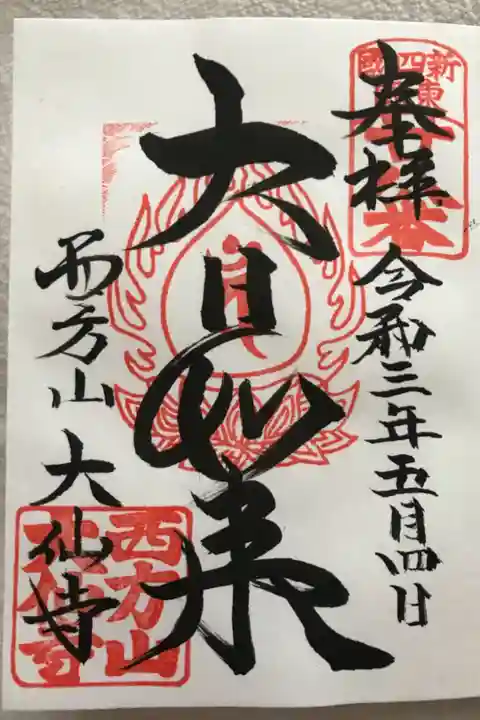 奉拝
令和三年五月四日
大日如来
西方山大仙寺
新東
四国
西方山
大仙寺